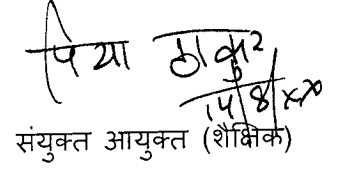 पिया ठाकुर
14/8/
संयुक्त आयुक्त (शैक्षिक)